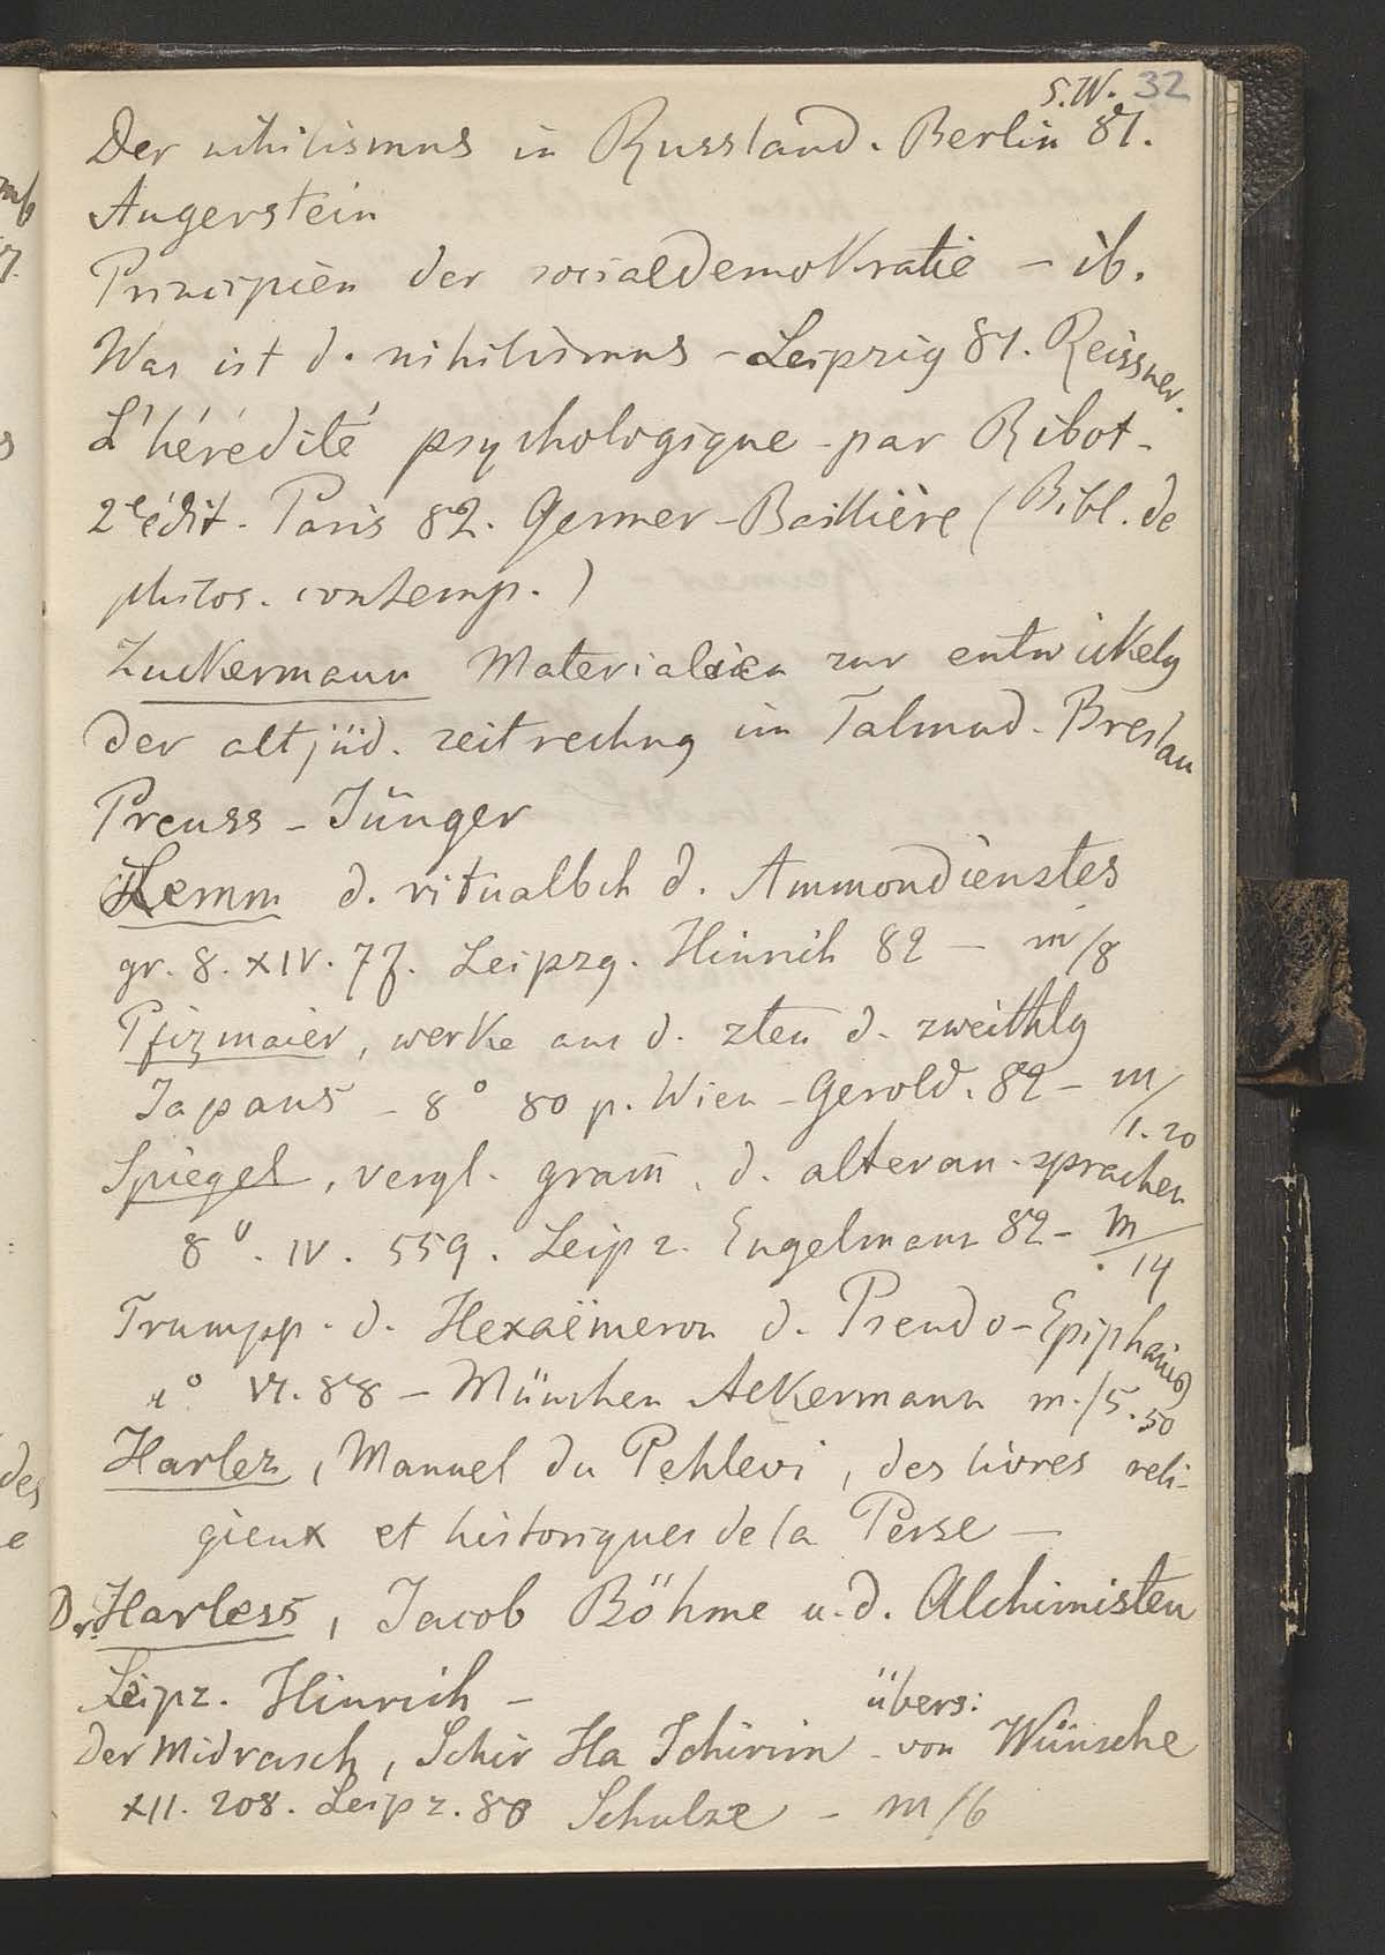 S.W. 32
Der nihilismus in Russland. Berlin 81.
Augerstein
Principien der socialdemokratie - ib.
Was ist d. nihilismus - Leipzig 81. Reissner.
L'hérédité psychologique - par Ribot -
2e édit. Paris 82. Germer-Baillière (Bibl. de
philos. contemp.)
Zuckermann Materialien zur entwickelg
der altjüd. zeitrechng im Talmud. Breslau
Preuss - Jünger
Lemm d. ritualbch d. Ammondienstes
gr. 8. XIV. 77. Leipzg. Hinrih 82 - m/8
Pfizmaier, werke aus d. zten d. zweithlg
Japans - 8° 80 p. Wien - Gerold. 82 - m/
1.20
Spiegel, vergl. gram̄. d. alteran. sprachen
8°. IV. 559. Leipz. Engelmann 82 - m/
14
Trumpp. d. Hexaëmeron d. Pseudo-Epiphanius
4° VI. 88 - München Ackermann m./5.50
Harlez, Manuel du Pehlevi, des livres reli-
gieux et historiques de la Perse -
Dr. Harless, Jacob Böhme u. d. Alchimisten
Leipz. Hinrich -
übers:
Der Midrasch, Schir Ha Schirim - von Wünsche
XII. 208. Leipz. 80 Schulze - m/6